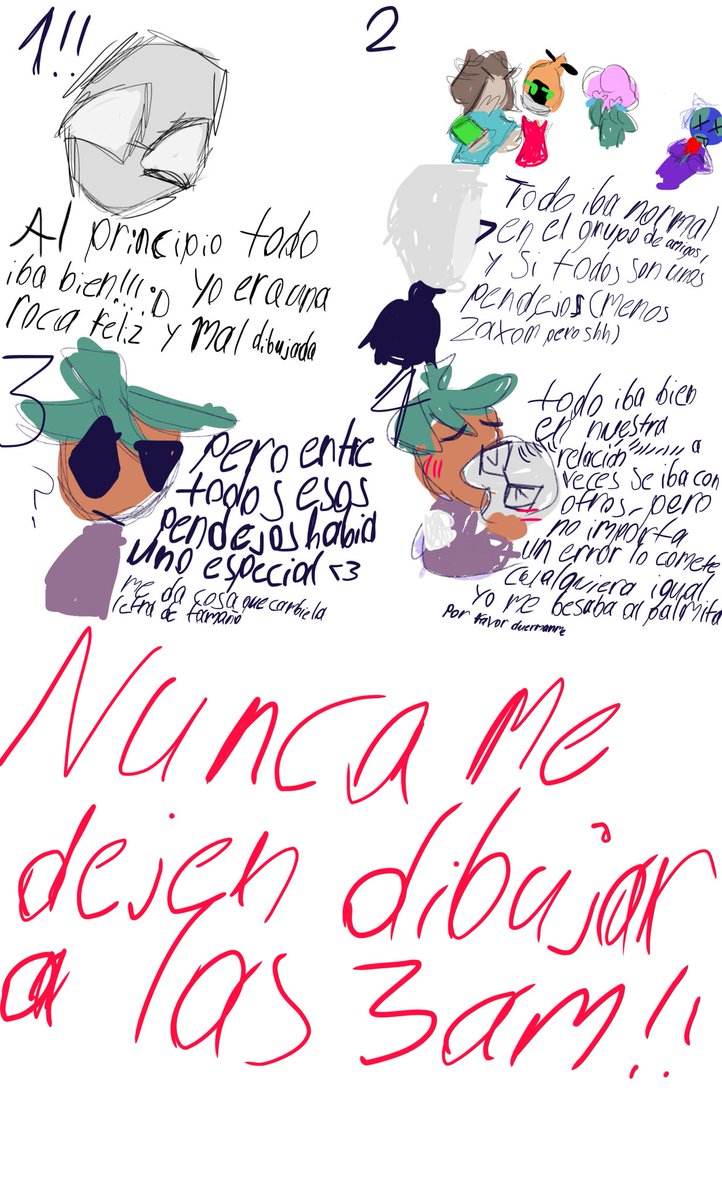 1!!
Al principio todo
iba bien!!! :D yo era una
roca feliz y mal dibujada
2
Todo iba normal
en el grupo de amigos,
y si todos son unos
pendejos (menos
zaxon pero shh)
3
?
pero entre
todos esos
pendejos habia
uno especial <3
me da cosa que cambie la
letra de tamaño
4
todo iba bien
en nuestra
"relación" a
veces se iba con
otros, pero
no importa
un error lo comete
cualquiera igual
yo me besaba al palmita
Por favor duermanme
Nunca me
dejen dibujar
a las 3am!!